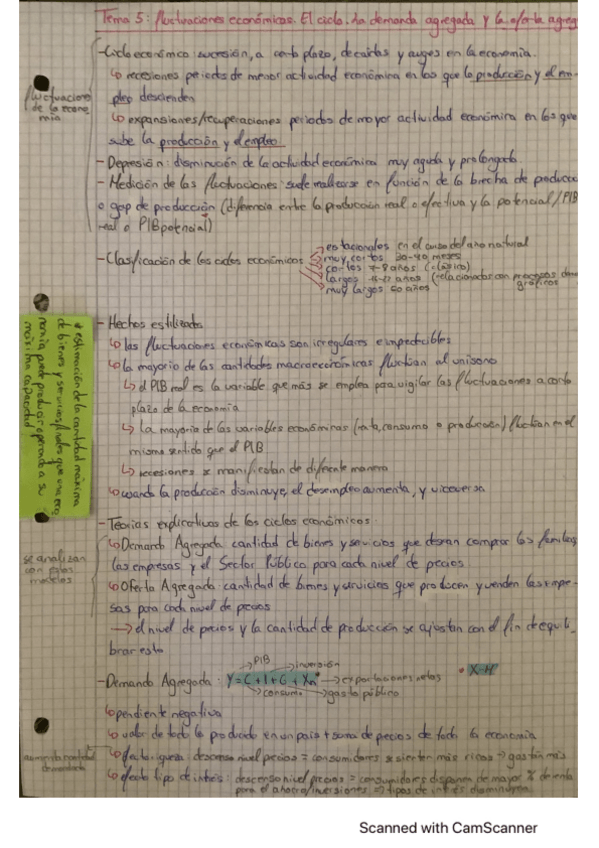 Tema 5: fluctuaciones económicas. El ciclo. La demanda agregada y la oferta agreg
fluctuaciones
de la econo
mía
-Ciclo económico: sucesión, a corto plazo, de caídas y auges en la economía.
↳ recesiones periodos de menor actividad económica en los que la producción y el em-
pleo descienden
↳ expansiones/recuperaciones periodos de mayor actividad económica en los que
sube la producción y el empleo
- Depresión: disminución de la actividad económica muy aguda y prolongada.
- Medición de las fluctuaciones: suele realizarse en función de la brecha de producc
o gap de producción (diferencia entre la producción real o efectiva y la potencial/PIB
real o PIB potencial)
-Clasificación de los ciclos económicos
→ estacionales en el curso del año natural
→ muy cortos 30-40 meses
→ cortos 7-8 años (clásico)
→ largos años (relacionados con procesos demo
gráficos)
muy largos 50 años
* estimación de la cantidad máxima
de bienes y servicios finales que una eco
nomía puede producir operando a su
máxima capacidad
- Hechos estilizados
↳ las fluctuaciones económicas son irregulares e impredecibles
↳ la mayoría de las cantidades macroeconómicas fluctúan al unísono
↳ el PIB real es la variable que más se emplea para vigilar las fluctuaciones a corto
plazo de la economía
↳ la mayoría de las variables económicas (renta, consumo o producción) fluctúan en el
mismo sentido que el PIB
↳ recesiones se manifiestan de diferente manera
↳ cuando la producción disminuye, el desempleo aumenta, y viceversa
- Teorías explicativas de los ciclos económicos:
se analizan
con estos
modelos
↳ Demanda Agregada cantidad de bienes y servicios que desean comprar las familias
las empresas y el Sector Público para cada nivel de precios
↳ Oferta Agregada cantidad de bienes y servicios que producen y venden las empre-
sas para cada nivel de precios
→ el nivel de precios y la cantidad de producción se ajustan con el fin de equili_
brar esto
→ PIB → inversión
- Demanda Agregada: Y = C + I + G + Xn* → exportaciones netas
* X-M
→ consumo → gasto público
↳ pendiente negativa
↳ valor de todo lo producido en un país + suma de precios de toda la economía
aumenta cantidad
demandada
↳ efecto riqueza: descenso nivel precios = consumidores se sienten más ricos → gastan más
↳ efecto tipo de interés: descenso nivel precios = consumidores disponen de mayor % de renta
para el ahorro/inversiones → tipos de interés disminuyen
Scanned with CamScanner